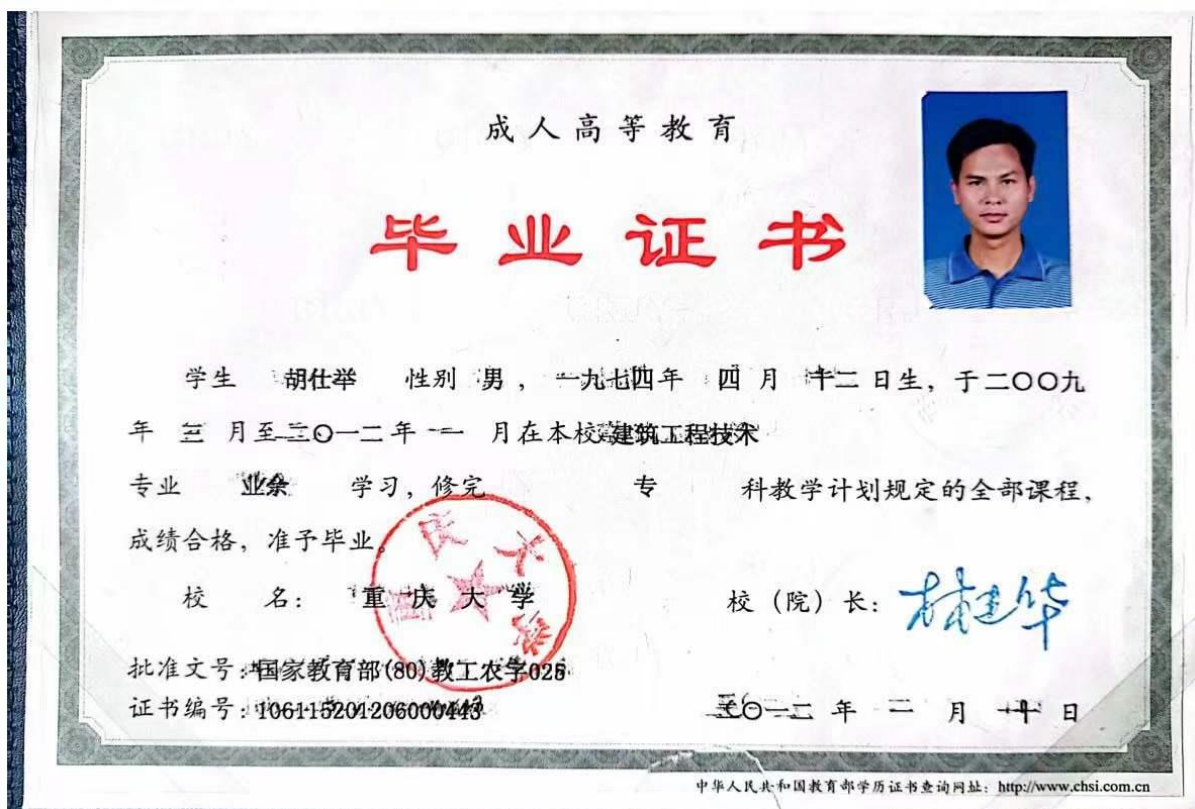 成人高等教育
毕业证书
学生 胡仕举 性别 男，一九七四年 四 月 十二 日生，于二〇〇九
年 三 月至二〇一二年 一 月在本校 建筑工程技术
专业 业余 学习，修完 专 科教学计划规定的全部课程，
成绩合格，准予毕业。
重庆大学
校 名： 重庆大学 校（院）长：林建华
批准文号：国家教育部(80)教工农字025
证书编号：106115201206000443 二〇一二 年 一 月 日
中华人民共和国教育部学历证书查询网址：http://www.chsi.com.cn